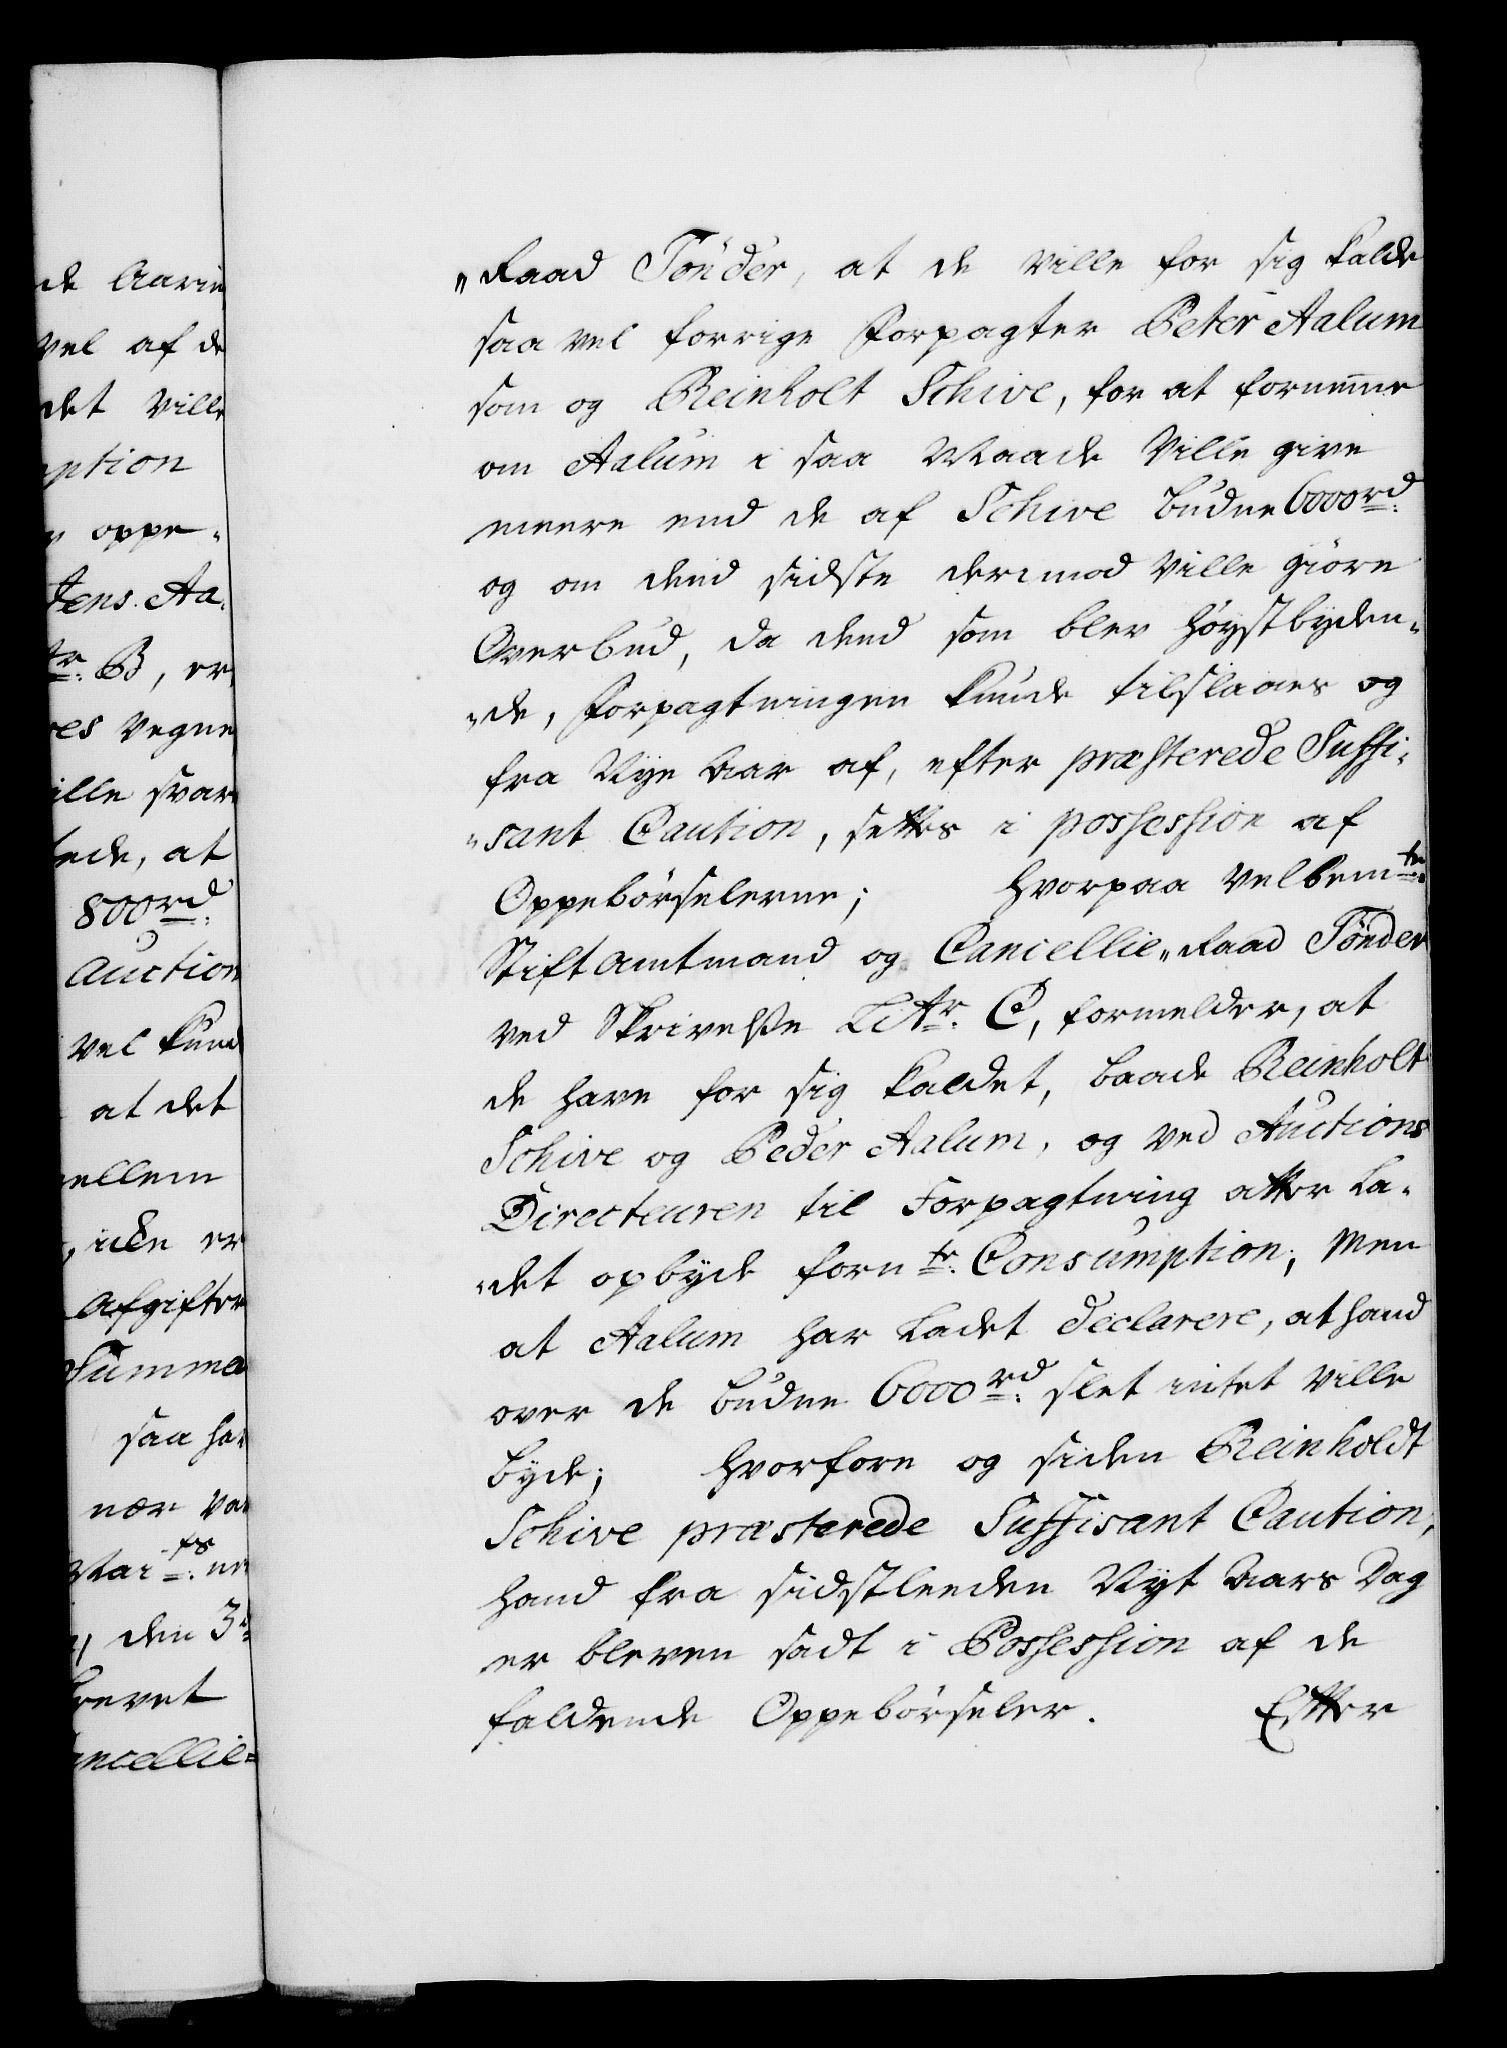 de Aarin
vel af de
det ville
ption
oppe-
tens. Aa-
tr. B, er,
res vegne
ille svar
tede, at
800rd.
Auction
vel kund
at det
ellem
iden er
Afgifter
Summa
saa ha-
nær va
den 3
brevet
ancellie-
"Raad Tönder, at de ville for sig kalde
saa vel forrige Forpagter Peter Aalum
som og Reinholt Schive, for at fornemme
om Aalum i saa Maade ville give
meere end de af Schive budne 6000rd.
og om dend sidste derimod ville giöre
Overbud, da dend som blev Høystbyden-
"de, Forpagtningen kunde tilslaaes og
fra Nye Aar af, efter præsterede Suffi-
"sant Caution, settes i possession af
Oppebörselerne; Hvorpaa velbemte.
Stiftamtmand og Cancellie"Raad Tönder
ved Skrivelse Littr. C, formelder, at
de have for sig kaldet, baade Reinholt
Schive og Peder Aalum, og ved Auctions
Directeuren til Forpagtning atter la-
"det opbyde fornte. Consumption; Men
at Aalum har ladet declarere, at hand
over de budne 6000rd. slet intet ville
byde; Hvorfore og siden Reinholdt
Schive præsterede Suffisant Caution,
hand fra sidstleeden Nyt Aars Dag
er bleven sadt i Possession af de
faldende Oppebörseler. Efter